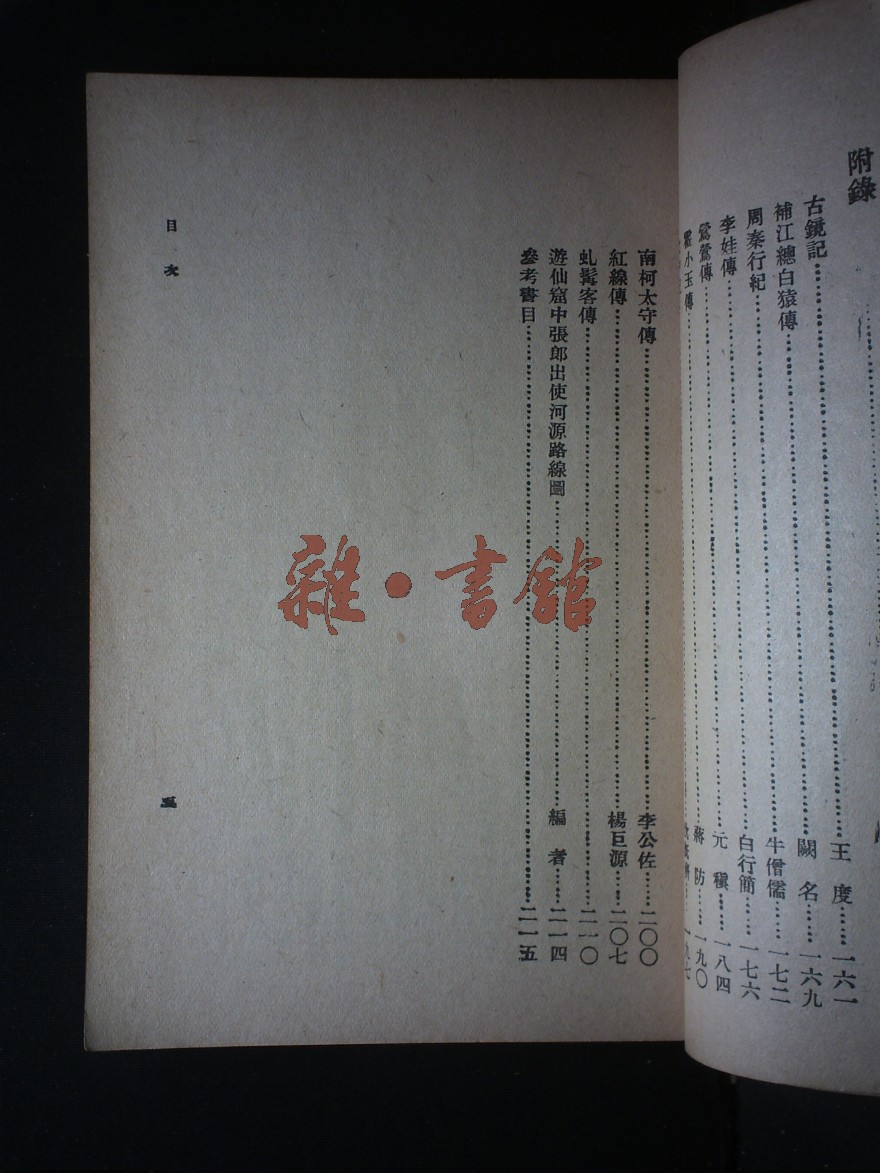 附錄
古鏡記……王度……一六一
補江總白猿傳……闕名……一六九
周秦行紀……牛僧儒……一七二
李娃傳……白行簡……一七六
鶯鶯傳……元稹……一八四
霍小玉傳……蔣防……一九〇
一九七
南柯太守傳……李公佐……二〇〇
紅線傳……楊巨源……二〇七
虬髯客傳……二一〇
遊仙窟中張郎出使河源路線圖……編者……二一四
參考書目……二一五
目次
五
雜·書館